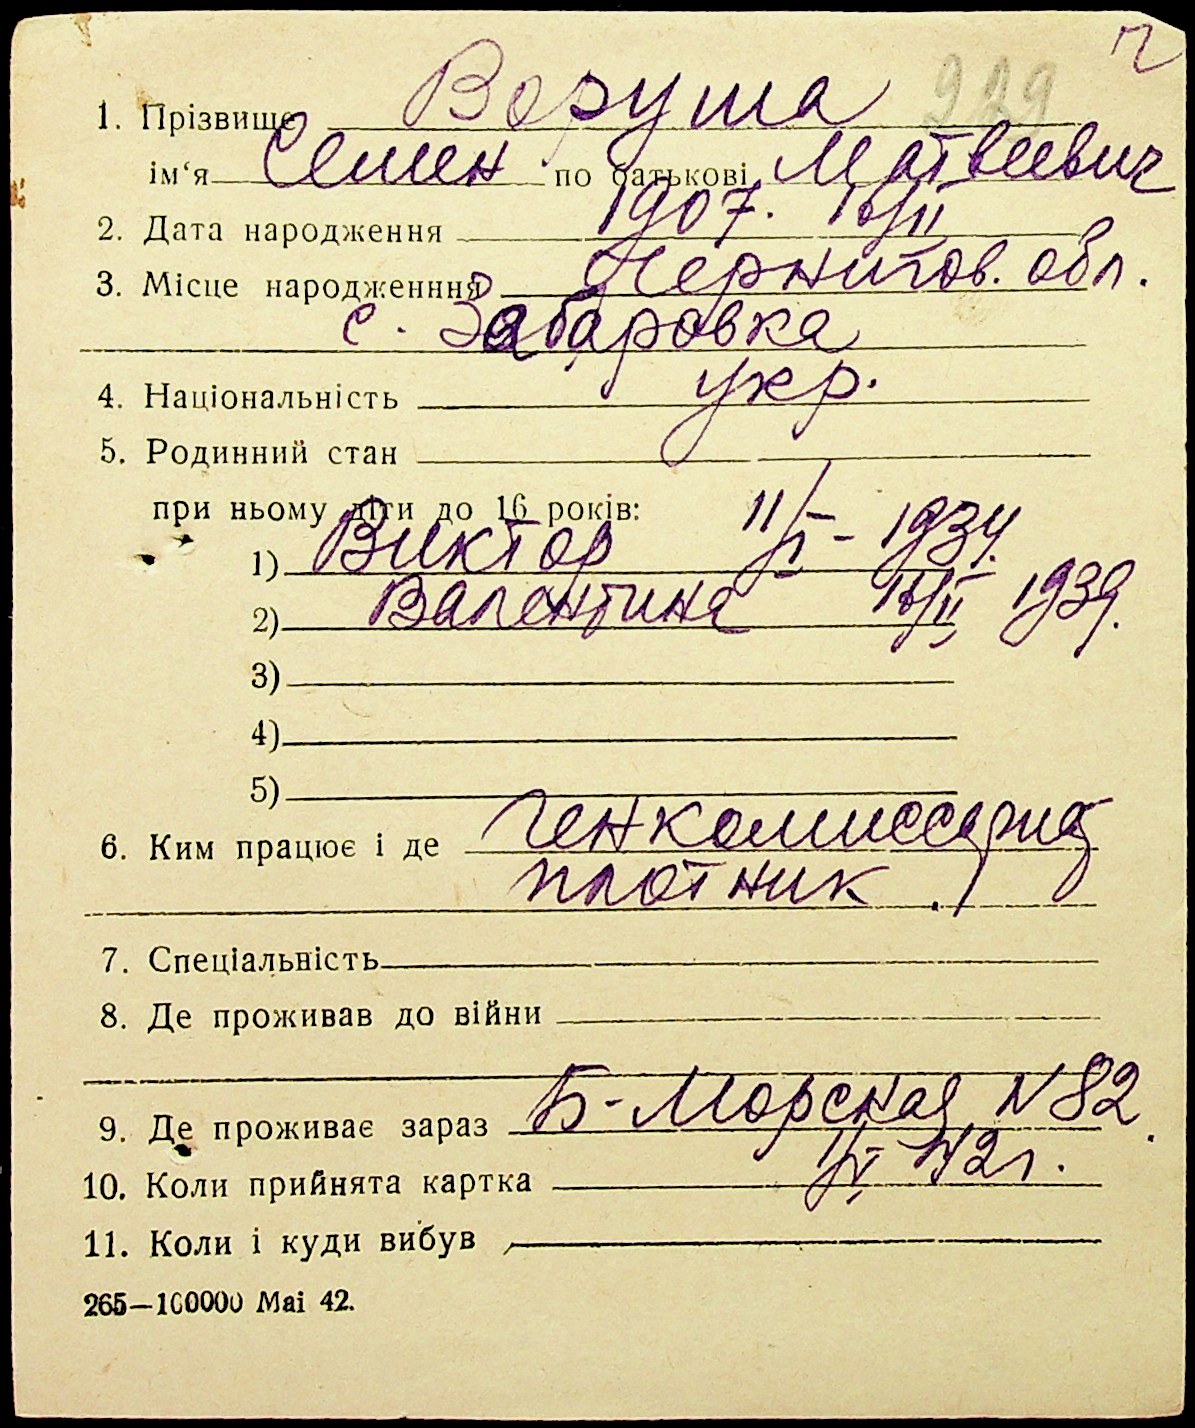 ч
929
1. Прізвище Воруша
ім‘я Семен по батькові Матвеевич
2. Дата народження 1907. 16/II
3. Місце народженння Чернигов. обл.
с. Забаровка
4. Національність укр.
5. Родинний стан
при ньому діти до 16 років:
1) Виктор 11/I - 1934.
2) Валентина 16/II 1939.
3)
4)
5)
6. Ким працює і де Генкомиссариа
плотник
7. Спеціальність
8. Де проживав до війни
9. Де проживає зараз Б-Морская N 82
10. Коли прийнята картка 42г.
11. Коли і куди вибув
265—100000 Mai 42.